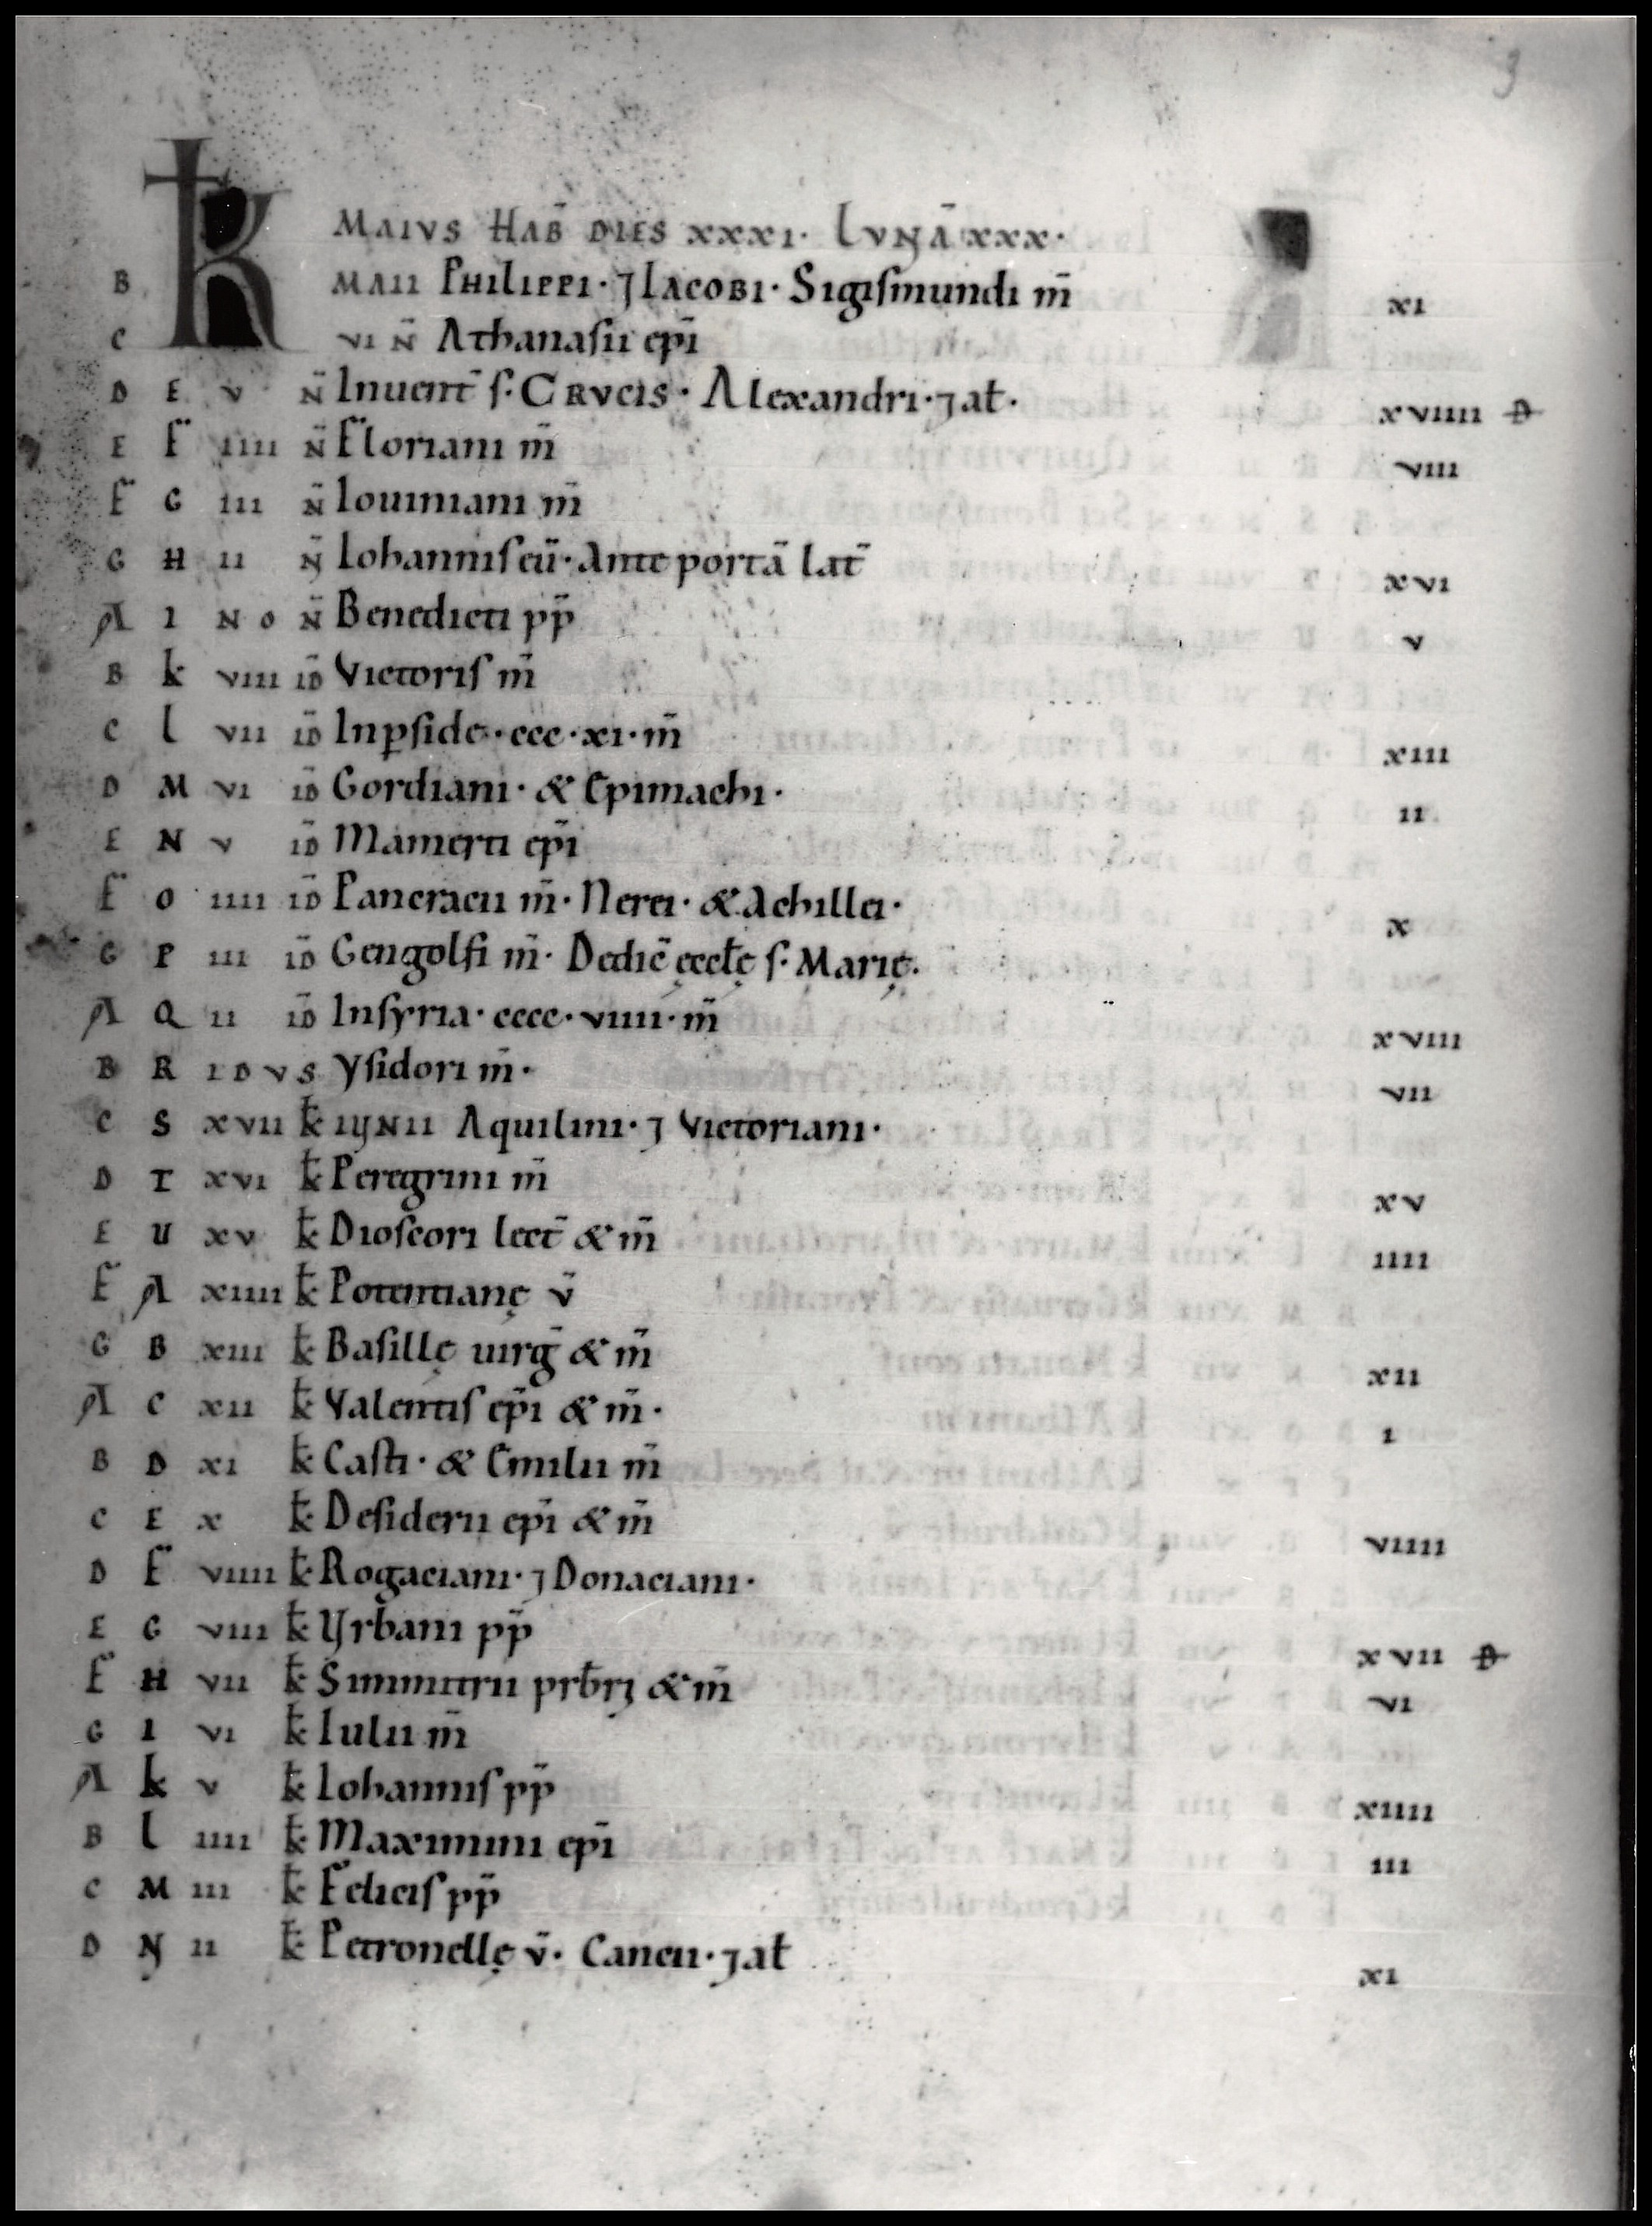 3
MAIVS HAB̄ DIES XXXI· LVNĀ XXX·
B K MAII PHILIPPI· ⁊ IACOBI· Sigiſmundi m̄ XI
C VI N̄ Athanaſii ep̄i
D E V N̄ Inuent̄ ſ· CRVCIS· Alexandri· ⁊ al̄· XVIIII D
E F IIII N̄ Floriani m̄ VIII
F G III N̄ Iouiniani m̄
G H II N̄ Iohanniſ eū· Ante portā lat̄ XVI
A I N O N̄ Benedicti pp̄ V
B k VIII ID̄ Victoriſ m̄
C l VII ID̄ In pſide· ccc· xi· m̄ XIII
D M VI ID̄ Gordiani· & Epimachi· II
E N V ID̄ Mamerti ep̄i
F O IIII ID̄ Pancracii m̄· Nerei· & Achillei· X
G P III ID̄ Gengolfi m̄· Dedic̄ ęccl̄ę ſ· Marię·
A Q II ID̄ Inſyria· cccc· viiii· m̄ XVIII
B R IDVS Yſidori m̄· VII
C S XVII k̄ IVNII Aquilini· ⁊ Victoriani·
D T XVI k̄ Peregrini m̄ XV
E U XV k̄ Dioſcori lect̄ & m̄ IIII
F A XIIII k̄ Potentianę v̄
G B XIII k̄ Baſillę uirḡ & m̄ XII
A C XII k̄ Valentiſ ep̄i & m̄· I
B D XI k̄ Caſti· & Emilii m̄
C E X k̄ Deſiderii ep̄i & m̄ VIIII
D F VIIII k̄ Rogaciani· ⁊ Donaciani·
E G VIII k̄ Vrbani pp̄ XVII D
F H VII k̄ Simmitrii prb̄ri & m̄ VI
G I VI k̄ Iulii m̄
A k V k̄ Iohanniſ pp̄ XIIII
B l IIII k̄ Maximini ep̄i III
C M III k̄ Feliciſ pp̄
D N II k̄ Petronellę v̄· Cancii· ⁊ al̄ XI